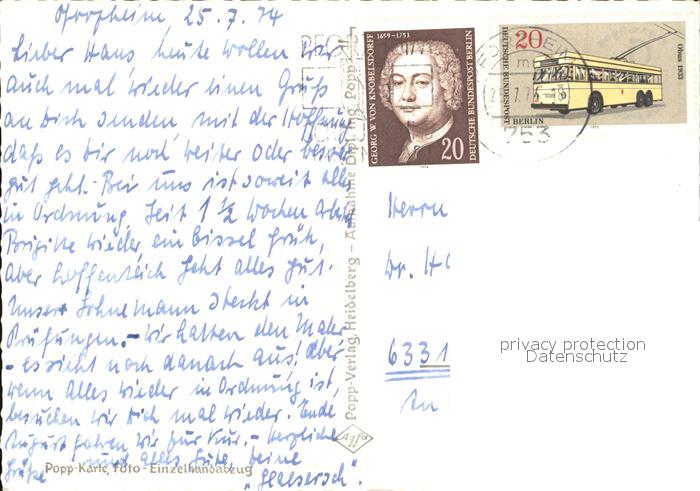 Pforzheim, 25.7.74
Lieber Hans, heute wollen wir
auch mal wieder einen Gruß
an Dich senden, mit der Hoffnung
daß es Dir noch weiter oder besser
gut geht. Bei uns ist soweit alles
in Ordnung. Seit 1 1/2 Wochen
Brigitte wieder, ein bissel früh,
aber hoffentlich geht alles gut.
Unser Sohnemann steckt in
Prüfungen. - Wir hatten den Maler
- es sieht noch danach aus! Aber
wenn Alles wieder in Ordnung ist,
besuchen wir Dich mal wieder. Ende
August fahren wir zur Kur. - Herzliche
Grüße und alles Gute, Deine
Popp-Karte, Foto-Einzelhandabzug
Popp-Verlag, Heidelberg - Aufnahme Dipl.-Ing. Popp
Agfa
GEORG W. VON KNOBELSDORFF
1659-1753
DEUTSCHE BUNDESPOST BERLIN
20
20
DEUTSCHE BUNDESPOST
BERLIN
Obus 1933
753
Herrn
Dr.
6331
An
privacy protection
Datenschutz